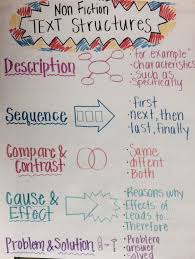 Non Fiction
TEXT STRUCTURES
Description
• "for example"
• characteristics
• Such as
• Specifically
Sequence
• First
• next, then
• last, finally
Compare &
Contrast
• Same
• diffent
• Both
Cause &
Effect
• Reasons why
• Effects of
• Leads to...
• Therefore
Problem & Solution
• Problem
• answer
• solved